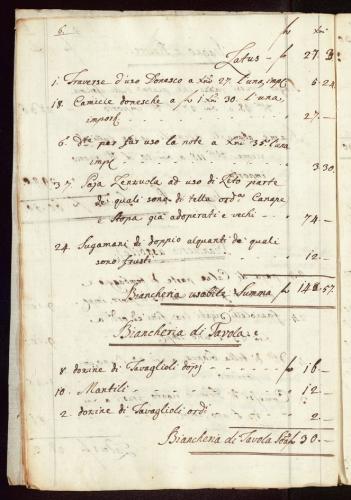 6. f Xni
Latus - f 27. 3
1. Traverse d'uso Donesco a Xni 27. l'una, imp. 5. 24
18. Camicie donesche a f 1 Xni 30. l'una,
import. 27. -
6. dte per far uso la note a Xni 35. l'una
imp. 3. 30.
37. Paja Lenzuola ad uso di Leto parte
de quali sono di tella ord.a Canape
e Stopa già adoperati e vechi - 74. -
24. Sugamani di doppio alquanti de quali
sono frusti 12. -
Biancheria usabile Summa f 148. 57.
Biancheria di Tavola e
8. dozine di Tavaglioli dopj - - - - f 16 -
10. Mantili 12 -
2. dozine di Tavaglioli ordi 2 -
Biancheria di Tavola Som. 30. -